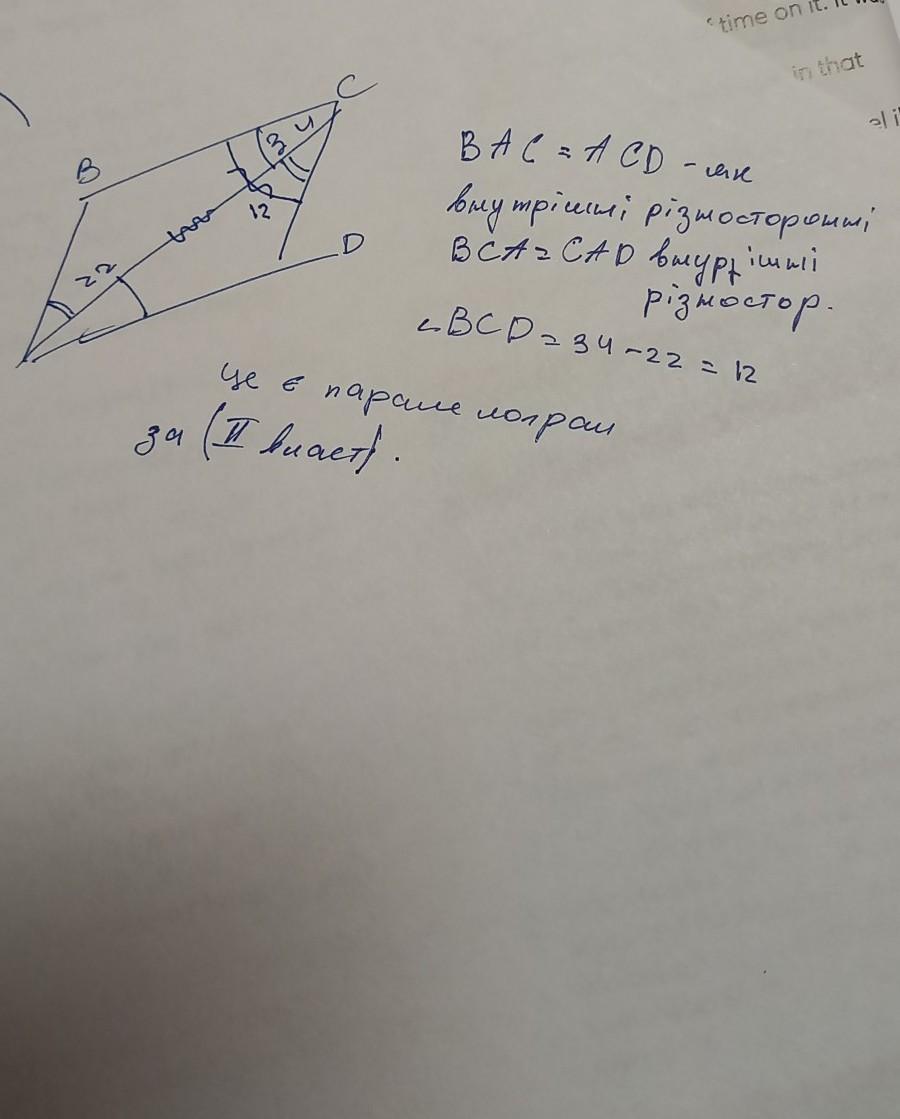 time on it. It
in that
C
B
3 4
12
22
D
BAC = ACD - як
внутрішні різносторонні
BCA = CAD внурішні
різностор.
∠BCD = 34 - 22 = 12
Це є паралелограм
за (II власт).